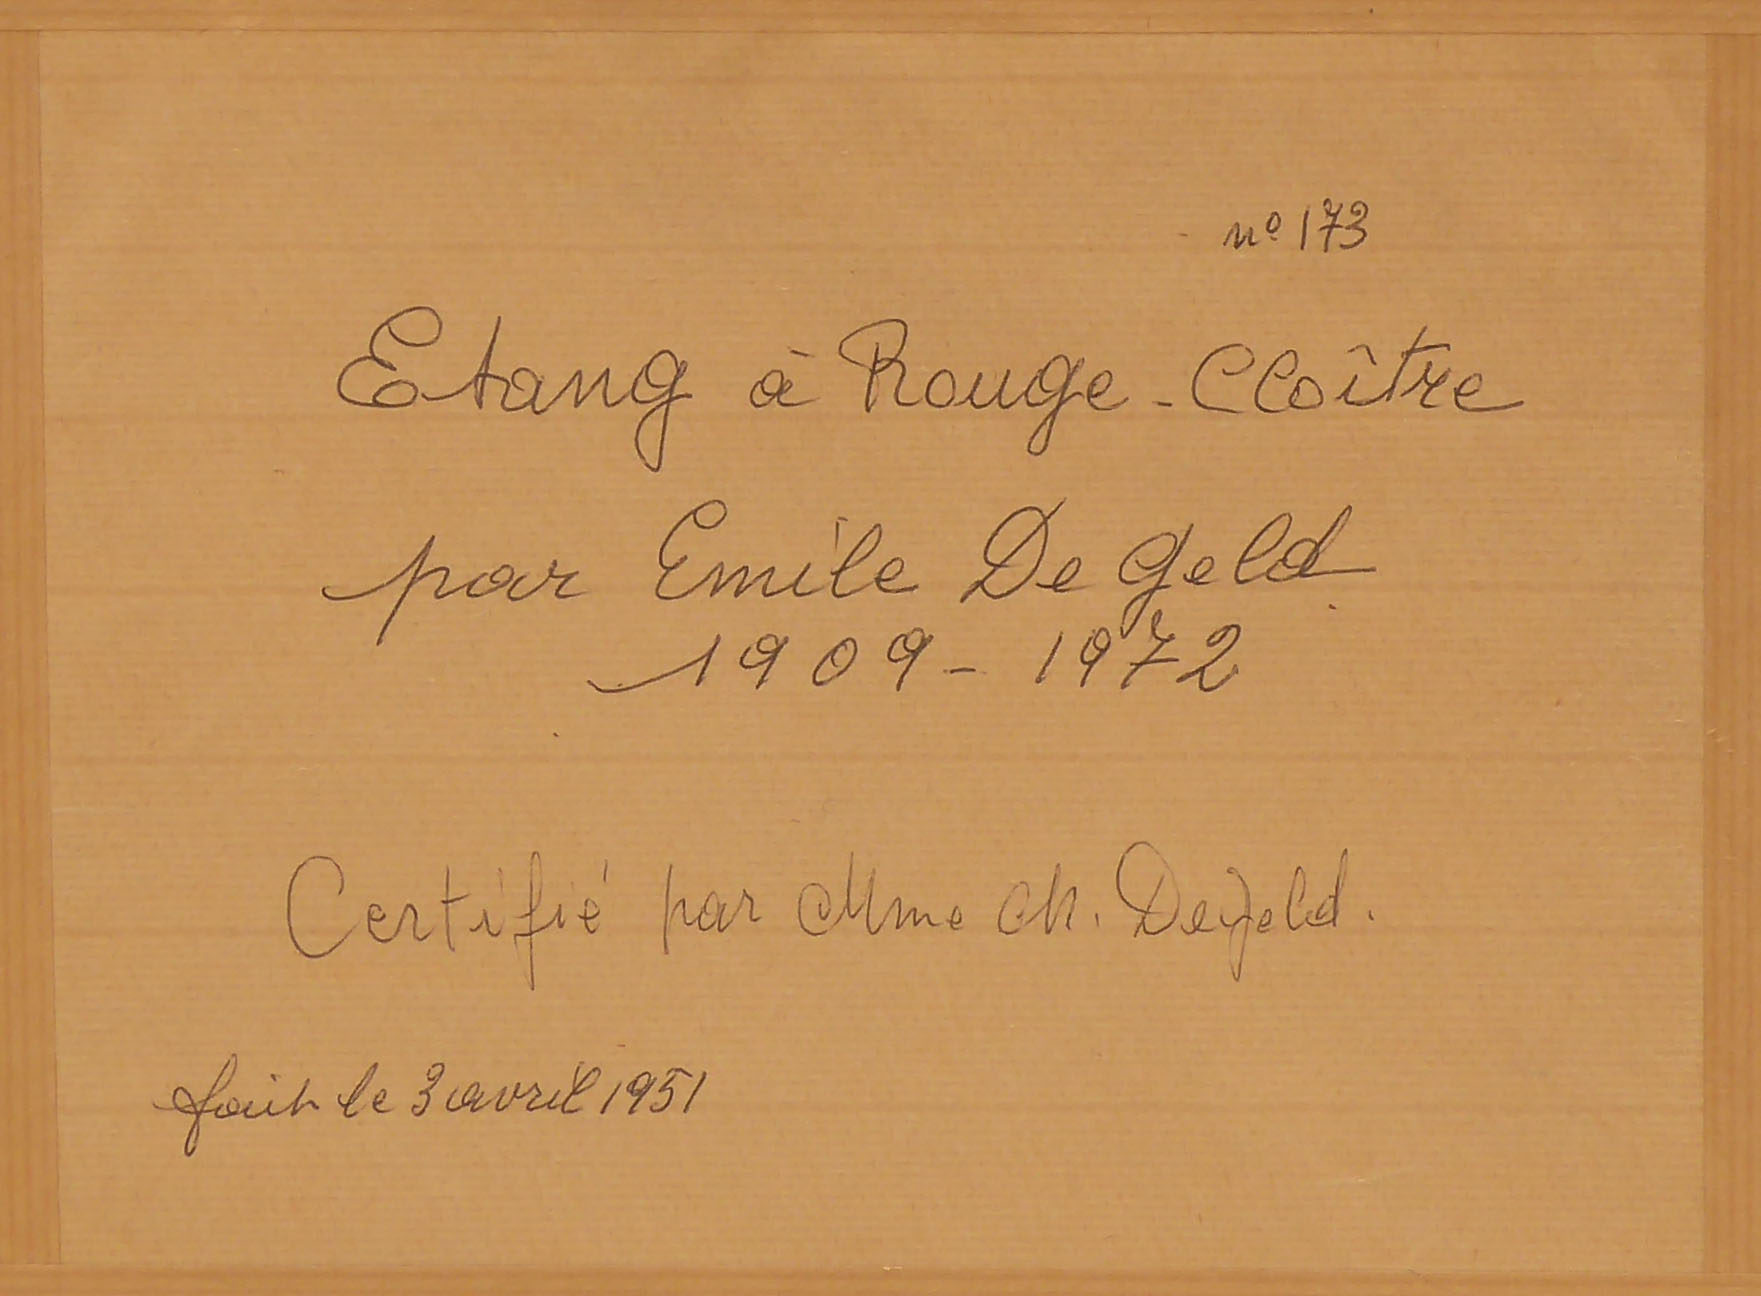 nº 173
Etang à Rouge-Cloître
par Emile De Geld
1909 - 1972
Certifié par Mme Ch. Degeld.
fait le 3 avril 1951